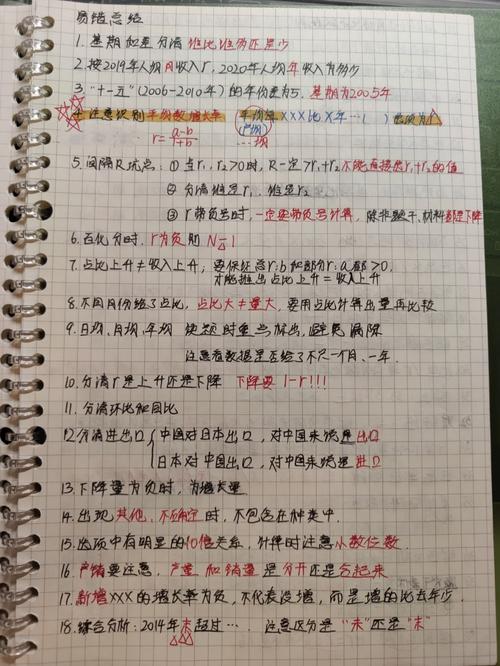 易错总结
1. 基期和差 分清 谁比谁多还是少
2. 按2019年人均月收入r, 2020年人均年收入为多少
3. "十一五"(2006-2010年)的年份差为5, 基期为2005年
4. 注意识别平均数增长率 平均每XXX比X年…( )
(户均)
r=a-b/1+b …均
5. 间隔R坑点: ① 当r₁, r₂>0时, R一定>r₁+r₂ 不能直接选r₁+r₂的值
② 分清谁是r₁, 谁是r₂
③ r带负号时, 一定要带负号计算, 除非题干、材料都是下降
6. 百化分时, r为负则
7. 占比上升≠收入上升, 要保证总r:b和部分r:a都>0,
才能推出占比上升=收入上升
8. 不同月份给了占比, 占比大≠量大, 要用占比计算出量再比较
9. 日均、月均、年均 读题时重点标出, 避免漏除
注意看数据是否给了不只一个月、一年.
10. 分清r是上升还是下降 下降要1-r!!!
11. 分清环比和同比
12. 分清进出口 中国对日本出口, 对中国来说是出口
日本对中国出口, 对中国来说是进口
13. 下降量为负时, 为增长量
14. 出现其他、不确定时, 不包含在种类中.
15. 选项中有明显的10倍关系, 计算时注意小数位数.
16. 产销要注意, 产量和销量是分开还是合起来
17. 新增XXX的增长率为负, 不代表没增, 而是增的比去年少.
18. 综合分析: 2014年末超过… 注意区分是"未"还是"末"